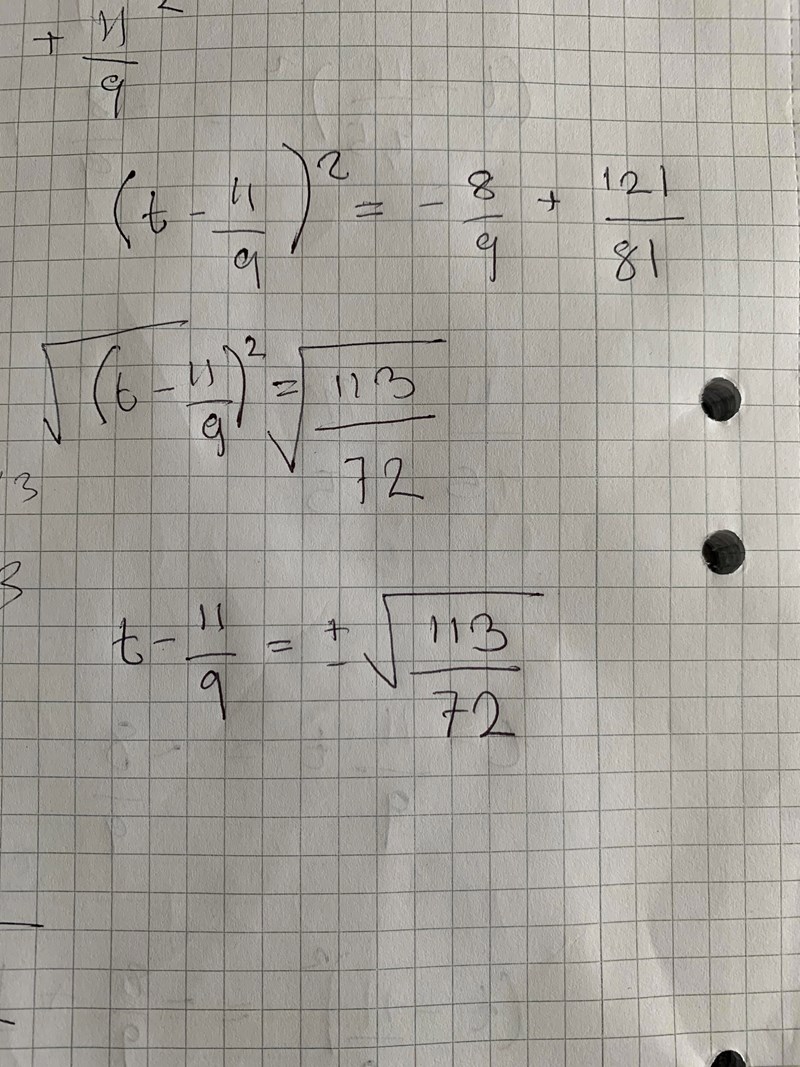 + 11/9 ²
(t - 11/9)² = - 8/9 + 121/81
√(t - 11/9)² = √113/72
3
3
t - 11/9 = ± √113/72